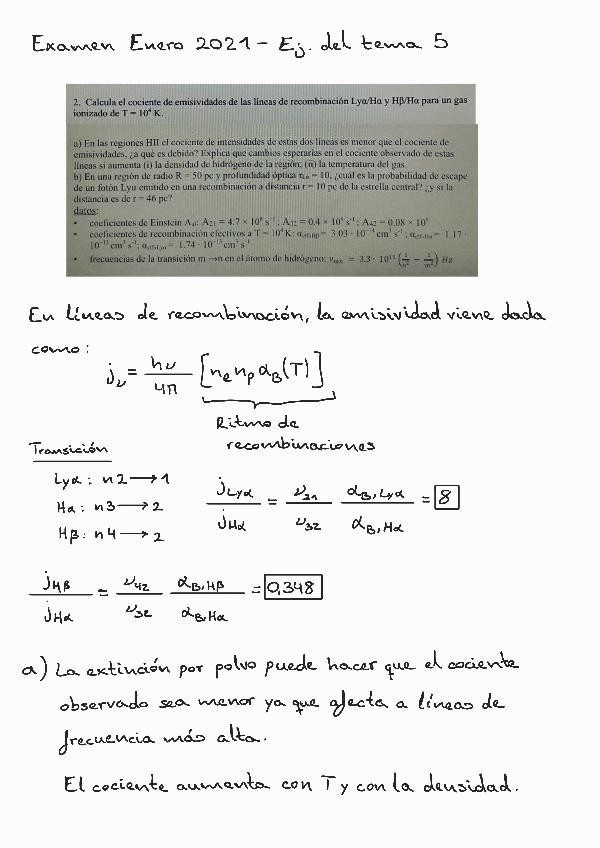 Examen Enero 2021 - Ej. del tema 5
2. Calcula el cociente de emisividades de las líneas de recombinación Lyα/Hα y Hβ/Hα para un gas
ionizado de T = 10⁴ K.
a) En las regiones HII el cociente de intensidades de estas dos líneas es menor que el cociente de
emisividades, ¿a qué es debido? Explica que cambios esperarías en el cociente observado de estas
líneas si aumenta (i) la densidad de hidrógeno de la región; (ii) la temperatura del gas.
b) En una región de radio R = 50 pc y profundidad óptica τLα = 10, ¿cuál es la probabilidad de escape
de un fotón Lyα emitido en una recombinación a distancia r = 10 pc de la estrella central? ¿y si la
distancia es de r = 46 pc?
datos:
• coeficientes de Einstein Aul: A21 = 4.7 × 10⁸ s⁻¹; A32 = 0.4 × 10⁸ s⁻¹; A42 = 0.08 × 10⁸
• coeficientes de recombinación efectivos a T = 10⁴ K: αeff,Hβ = 3.03 · 10⁻¹⁴ cm³ s⁻¹; αeff,Hα = 1.17 ·
10⁻¹³ cm³ s⁻¹; αeff,Lyα = 1.74 · 10⁻¹³ cm³ s⁻¹
• frecuencias de la transición m →n en el átomo de hidrógeno: νmn = 3.3 · 10¹⁵ (1/n² − 1/m²) Hz
En líneas de recombinación, la emisividad viene dada
como:
jν = hν/4π [ne np αB(T)]
Ritmo de
recombinaciones
Transición
Lyα: n2 → 1
Hα: n3 → 2
Hβ: n4 → 2
jLyα/jHα = ν21/ν32 αB,Lyα/αB,Hα = 8
jHβ/jHα = ν42/ν32 αB,Hβ/αB,Hα = 0,348
a) La extinción por polvo puede hacer que el cociente
observado sea menor ya que afecta a líneas de
frecuencia más alta.
El cociente aumenta con T y con la densidad.